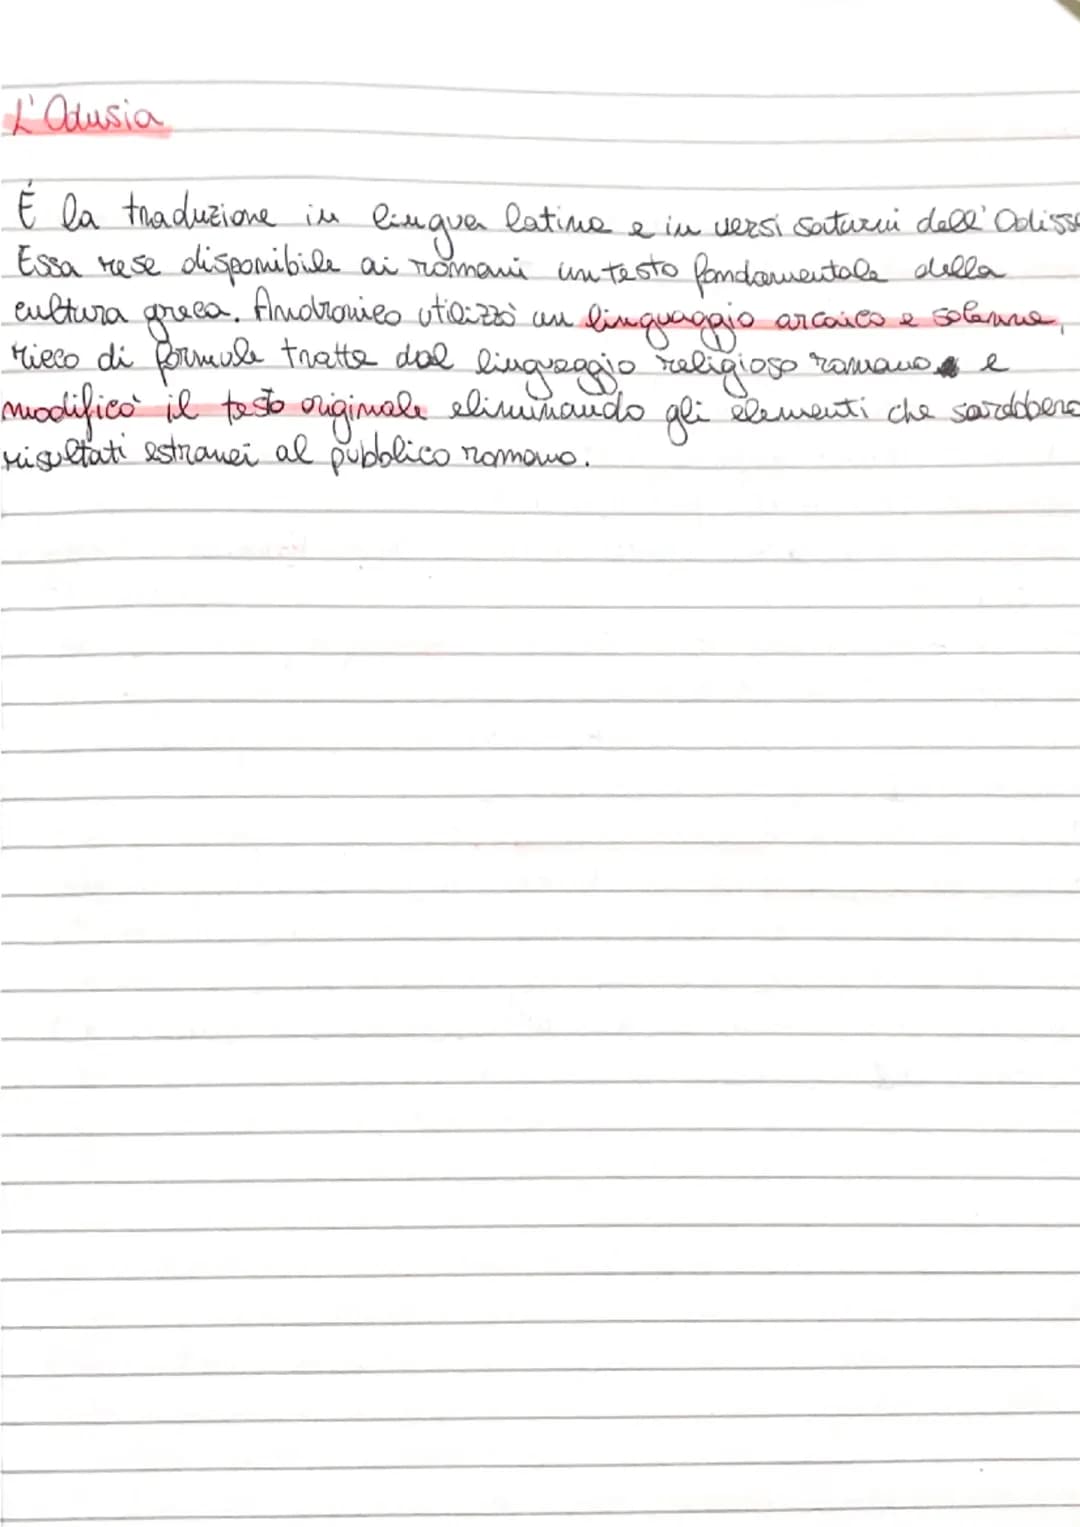 L'Odusia
È la traduzione in lingua latina e in versi saturni dell'Odisse
Essa rese disponibile ai romani un testo fondamentale della
cultura greca. Andronico utilizzò un linguaggio arcaico e solenne,
ricco di formule tratte dal linguaggio religioso romano e
modificò il testo originale eliminando gli elementi che sarebbero
risultati estranei al pubblico romano.